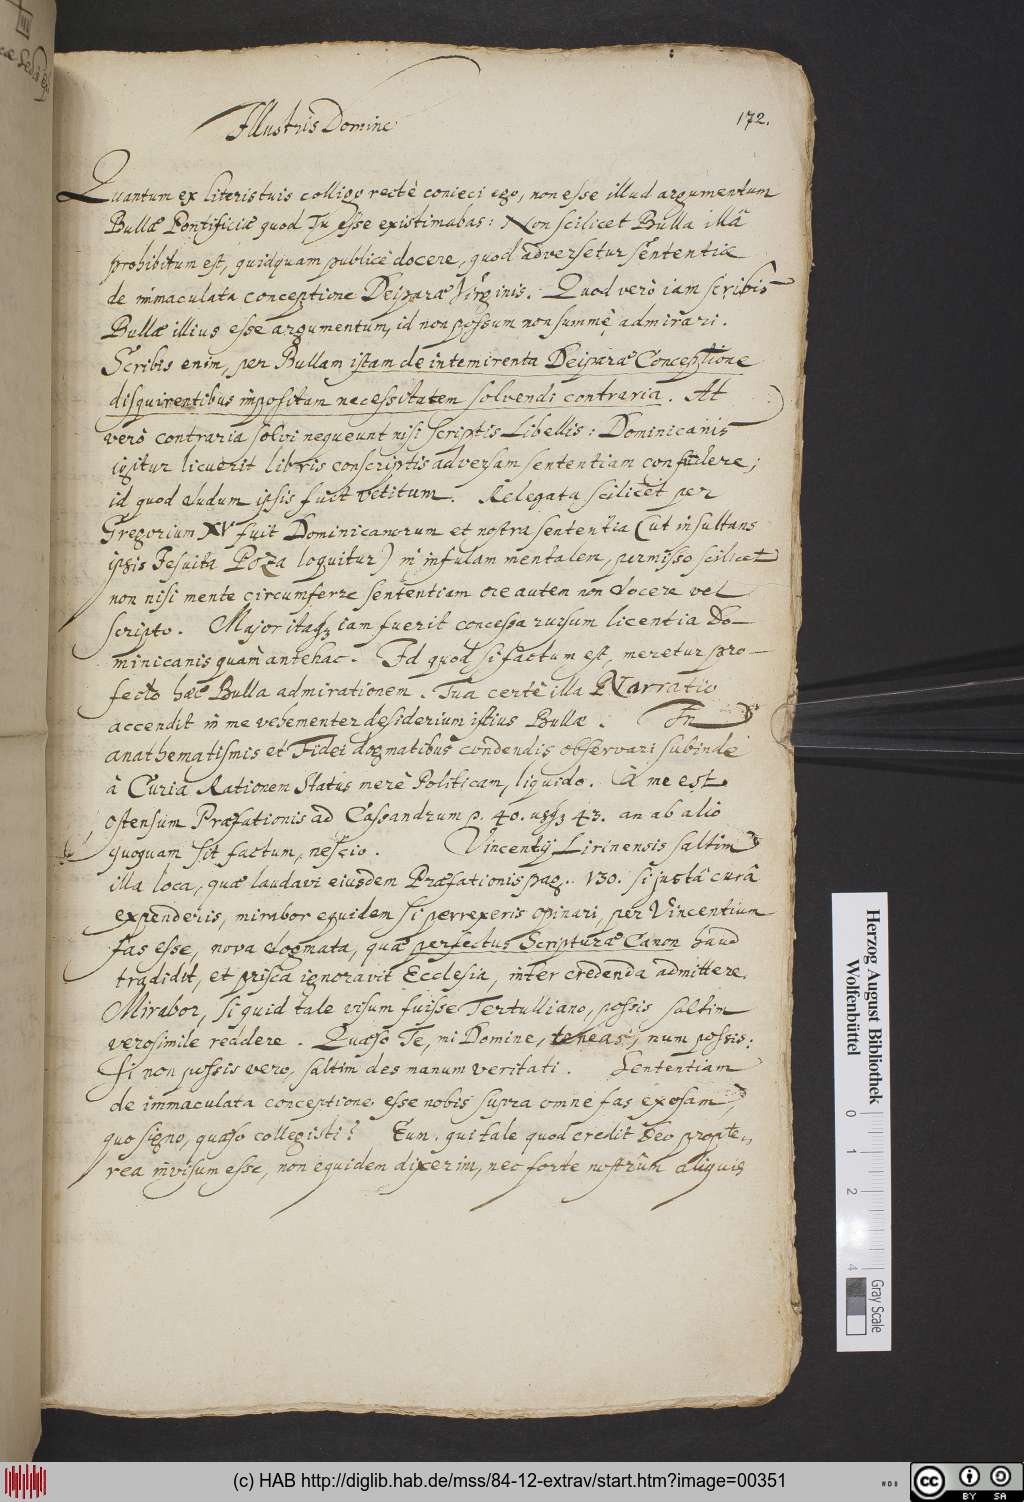 172.
Illustris Domine
Quantum ex literis tuis colligo rectè conieci ego, non esse illud argumentum
Bullæ Pontificiæ quod Tu esse existimabas: Non scilicet Bulla illâ
prohibitum est, quidquam publicè docere, quod adversetur sententiæ
de immaculata conceptione Deiparæ Virginis. Quod verò iam scribis
Bullæ illius esse argumentum, id non possum non summè admirari.
Scribis enim, per Bullam istam de intemerata Deiparæ Conceptione
disquirentibus impositam necessitatem solvendi contraria. At
verò contraria solvi nequeunt nisi scriptis Libellis: Dominicanis
igitur licuerit libris conscriptis adversam sententiam confundere;
id quod dudum ipsis fuit vetitum. Relegata scilicet per
Gregorium XV fuit Dominicanorum et nostra sententia (ut insultans
ipsis Jesuita Poza loquitur) in insulam mentalem, permisso scilicet
non nisi mente circumferre sententiam ore autem non docere vel
scripto. Major itaq; iam fuerit concessa rursum licentia Do-
minicanis quàm antehac. Id quod si factum est, meretur pro-
fecto hæc Bulla admirationem. Tua certè illa Narratio
accendit in me vehementer desiderium istius Bullæ. In
anathematismis et Fidei dogmatibus condendis observari subinde
à Curia Rationem Status merè Politicam, liquido. à me est
ostensum Præfationis ad Cassandrum p. 40. usq; 43. an ab alio
quoquam sit factum, nescio. Vincentij Lirinensis saltim
illa loca, quæ laudavi eiusdem Præfationis pag. 130. si justâ curâ
expenderis, mirabor equidem si perrexeris opinari, per Vincentium
fas esse, nova dogmata, quæ perfectus Scripturæ Canon haud
tradidit, et prisca ignoravit Ecclesia, inter credenda admittere.
Mirabor, si quid tale visum fuisse Tertulliano, possis saltim
verosimile reddere. Quæso Te, mi Domine, teneas, num possis:
Si non possis vero, saltim des manum veritati. Sententiam
de immaculata conceptione esse nobis supra omne fas exosam
quo signo, quæso collegisti? Eum, qui tale quod credit Deo propte-
rea invisum esse, non equidem dixerim, nec forte nostrûm aliquis
Herzog August Bibliothek
Wolfenbüttel
0 1 2 4
Gray Scale
(c) HAB http://diglib.hab.de/mss/84-12-extrav/start.htm?image=00351
cc BY SA